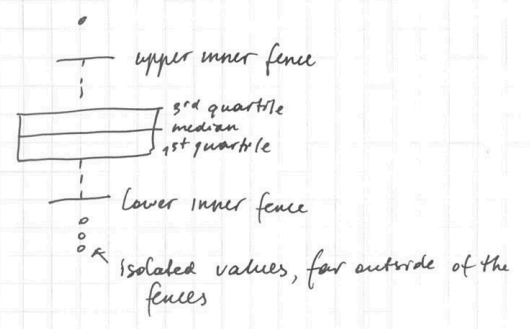 upper inner fence
3rd quartile
median
1st quartile
lower inner fence
isolated values, far outside of the
fences